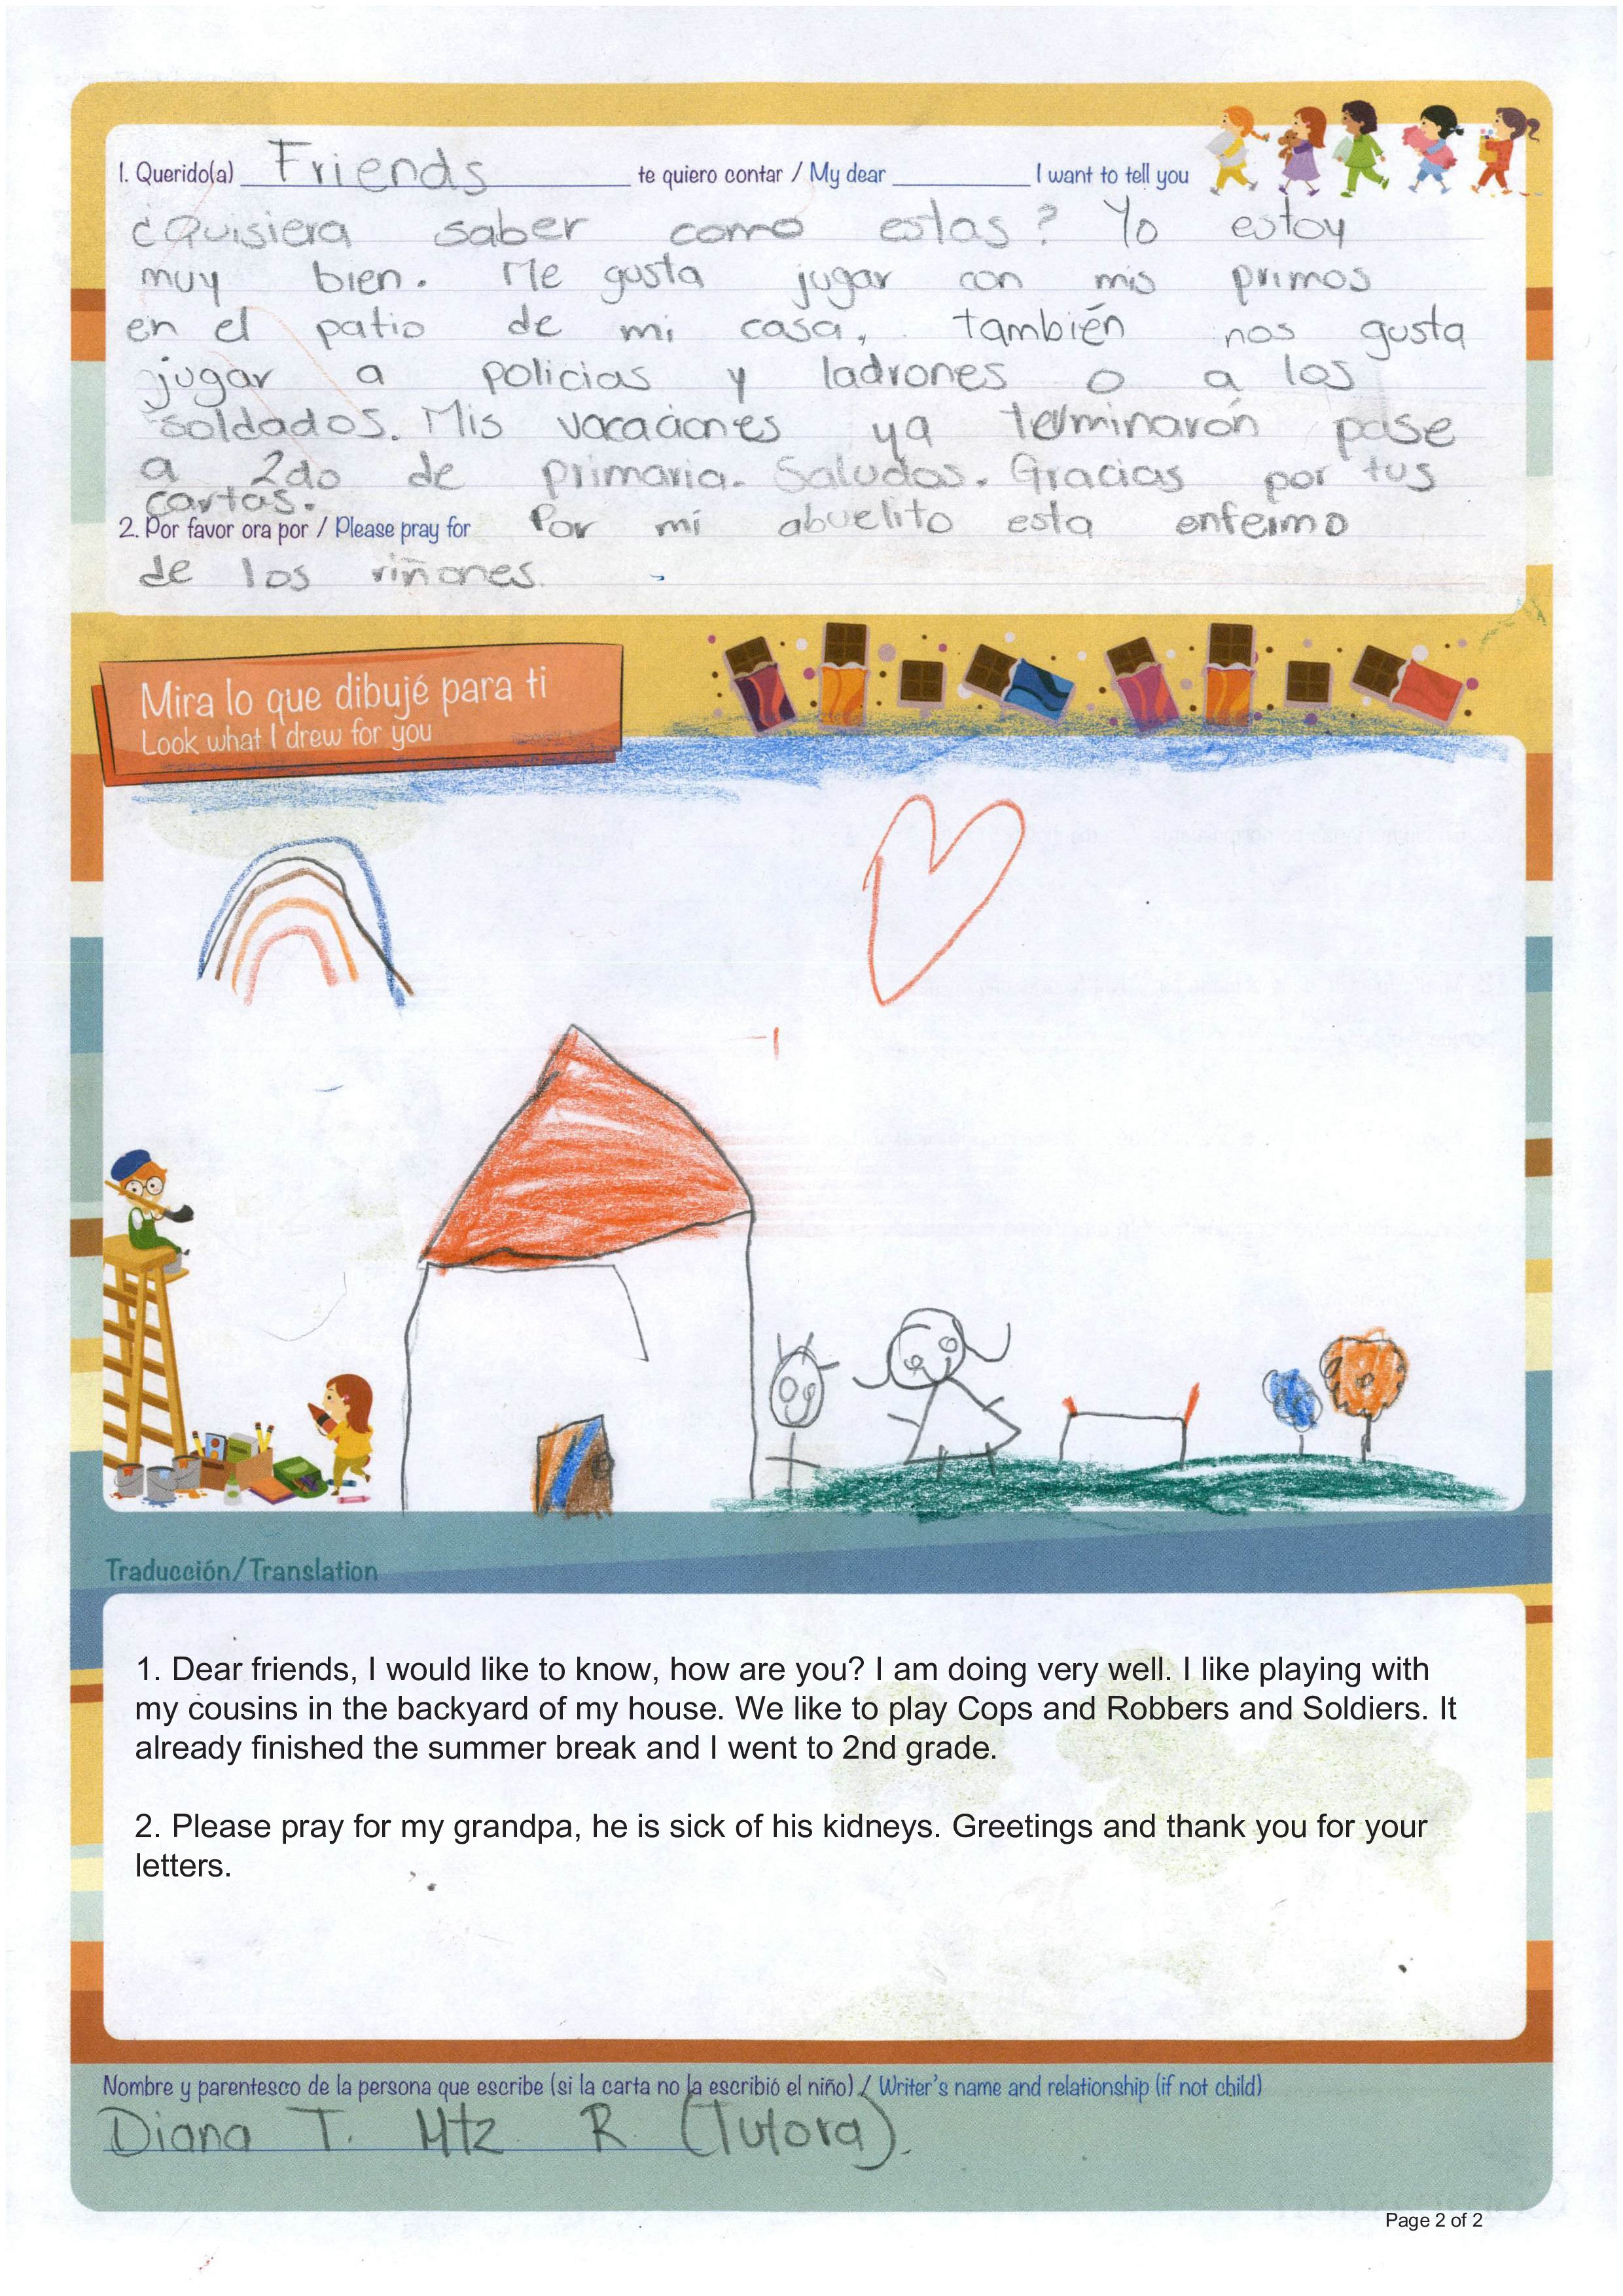 1. Querido(a) Friends te quiero contar / My dear __________ I want to tell you
¿Quisiera saber como estas? Yo estoy
muy bien. Me gusta jugar con mis primos
en el patio de mi casa, también nos gusta
jugar a policias y ladrones o a los
soldados. Mis vacaciones ya terminarón pase
a 2do de primaria. Saludos. Gracias por tus
cartas.
2. Por favor ora por / Please pray for Por mi abuelito esta enfermo
de los riñones.
Mira lo que dibujé para ti
Look what I drew for you
Traducción/Translation
1. Dear friends, I would like to know, how are you? I am doing very well. I like playing with
my cousins in the backyard of my house. We like to play Cops and Robbers and Soldiers. It
already finished the summer break and I went to 2nd grade.
2. Please pray for my grandpa, he is sick of his kidneys. Greetings and thank you for your
letters.
Nombre y parentesco de la persona que escribe (si la carta no la escribió el niño) / Writer's name and relationship (if not child)
Diana T. Mtz R. (Tutora).
Page 2 of 2